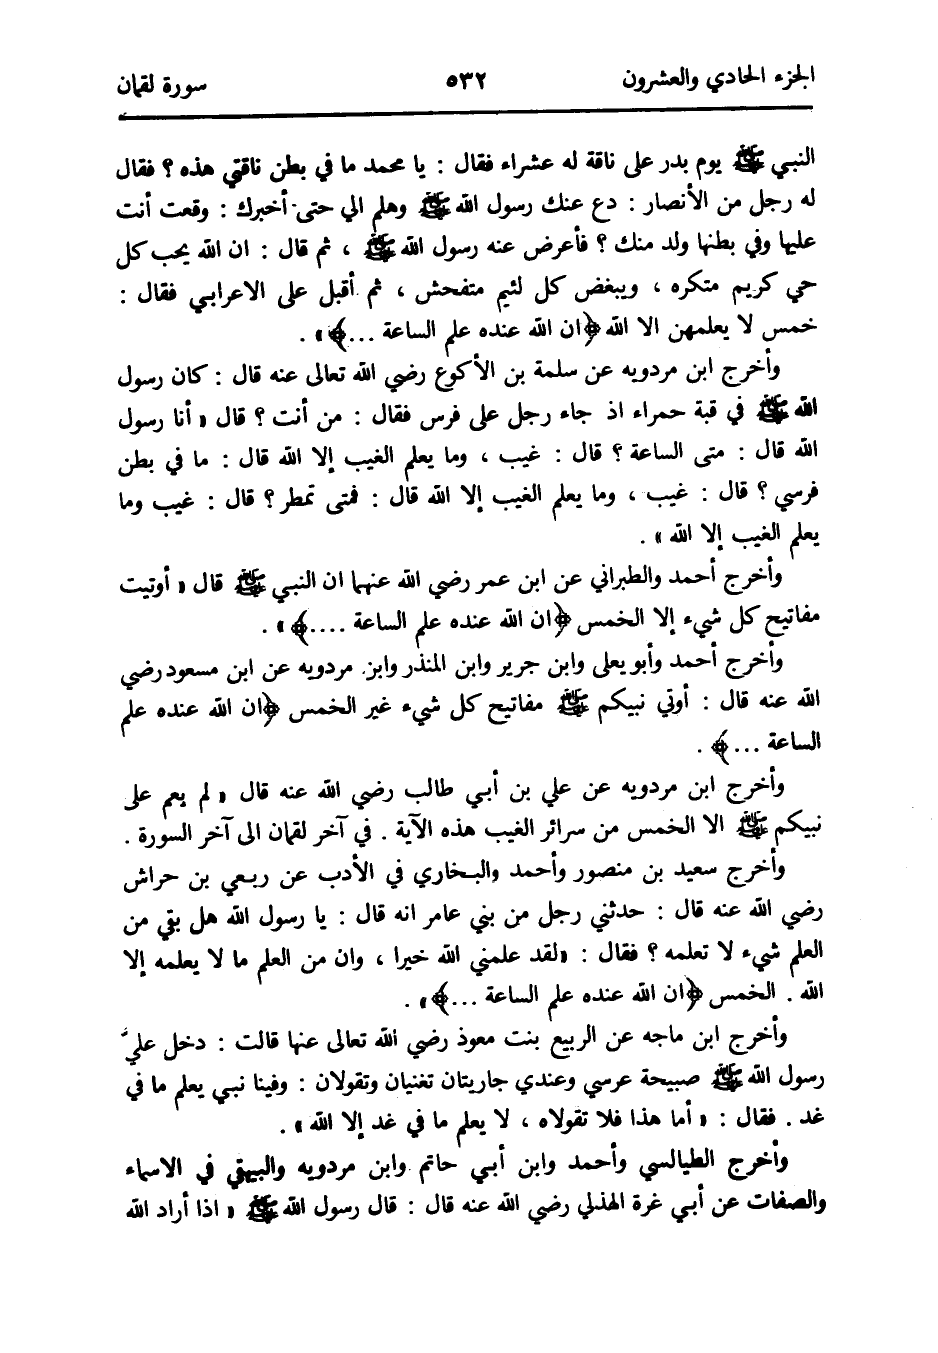 الجزء الحادي والعشرون ٥٣٢ سورة لقمان
النبي ﷺ يوم بدر على ناقة له عشراء فقال : يا محمد ما في بطن ناقتي هذه ؟ فقال
له رجل من الأنصار : دع عنك رسول الله ﷺ وهلم الي حتى أخبرك : وقعت أنت
عليها وفي بطنها ولد منك ؟ فأعرض عنه رسول الله ﷺ ، ثم قال : ان الله يحب كل
حي كريم متكره ، ويبغض كل لئيم متفحش ، ثم أقبل على الاعرابي فقال :
خمس لا يعلمهن الا الله ﴿ان الله عنده علم الساعة ...﴾» .
وأخرج ابن مردويه عن سلمة بن الأكوع رضي الله تعالى عنه قال : كان رسول
الله ﷺ في قبة حمراء اذ جاء رجل على فرس فقال : من أنت ؟ قال « أنا رسول
الله قال : متى الساعة ؟ قال : غيب ، وما يعلم الغيب إلا الله قال : ما في بطن
فرسي ؟ قال : غيب ، وما يعلم الغيب إلا الله قال : فمتى تمطر ؟ قال : غيب وما
يعلم الغيب إلا الله » .
وأخرج أحمد والطبراني عن ابن عمر رضي الله عنهما ان النبي ﷺ قال « أوتيت
مفاتيح كل شيء إلا الخمس ﴿ان الله عنده علم الساعة ....﴾» .
وأخرج أحمد وأبو يعلى وابن جرير وابن المنذر وابن مردويه عن ابن مسعود رضي
الله عنه قال : أوتي نبيكم ﷺ مفاتيح كل شيء غير الخمس ﴿ان الله عنده علم
الساعة ...﴾ .
وأخرج ابن مردويه عن علي بن أبي طالب رضي الله عنه قال « لم يعم على
نبيكم ﷺ الا الخمس من سرائر الغيب هذه الآية . في آخر لقمان الى آخر السورة .
وأخرج سعيد بن منصور وأحمد والبخاري في الأدب عن ربعي بن حراش
رضي الله عنه قال : حدثني رجل من بني عامر انه قال : يا رسول الله هل بقي من
العلم شيء لا تعلمه ؟ فقال : «لقد علمني الله خيرا ، وان من العلم ما لا يعلمه إلا
الله . الخمس ﴿ان الله عنده علم الساعة ...﴾» .
وأخرج ابن ماجه عن الربيع بنت معوذ رضي الله تعالى عنها قالت : دخل عليَّ
رسول الله ﷺ صبيحة عرسي وعندي جاريتان تغنيان وتقولان : وفينا نبي يعلم ما في
غد . فقال : « أما هذا فلا تقولاه ، لا يعلم ما في غد إلا الله » .
وأخرج الطيالسي وأحمد وابن أبي حاتم وابن مردويه والبيهقي في الاسماء
والصفات عن أبي غرة الهذلي رضي الله عنه قال : قال رسول الله ﷺ « اذا أراد الله